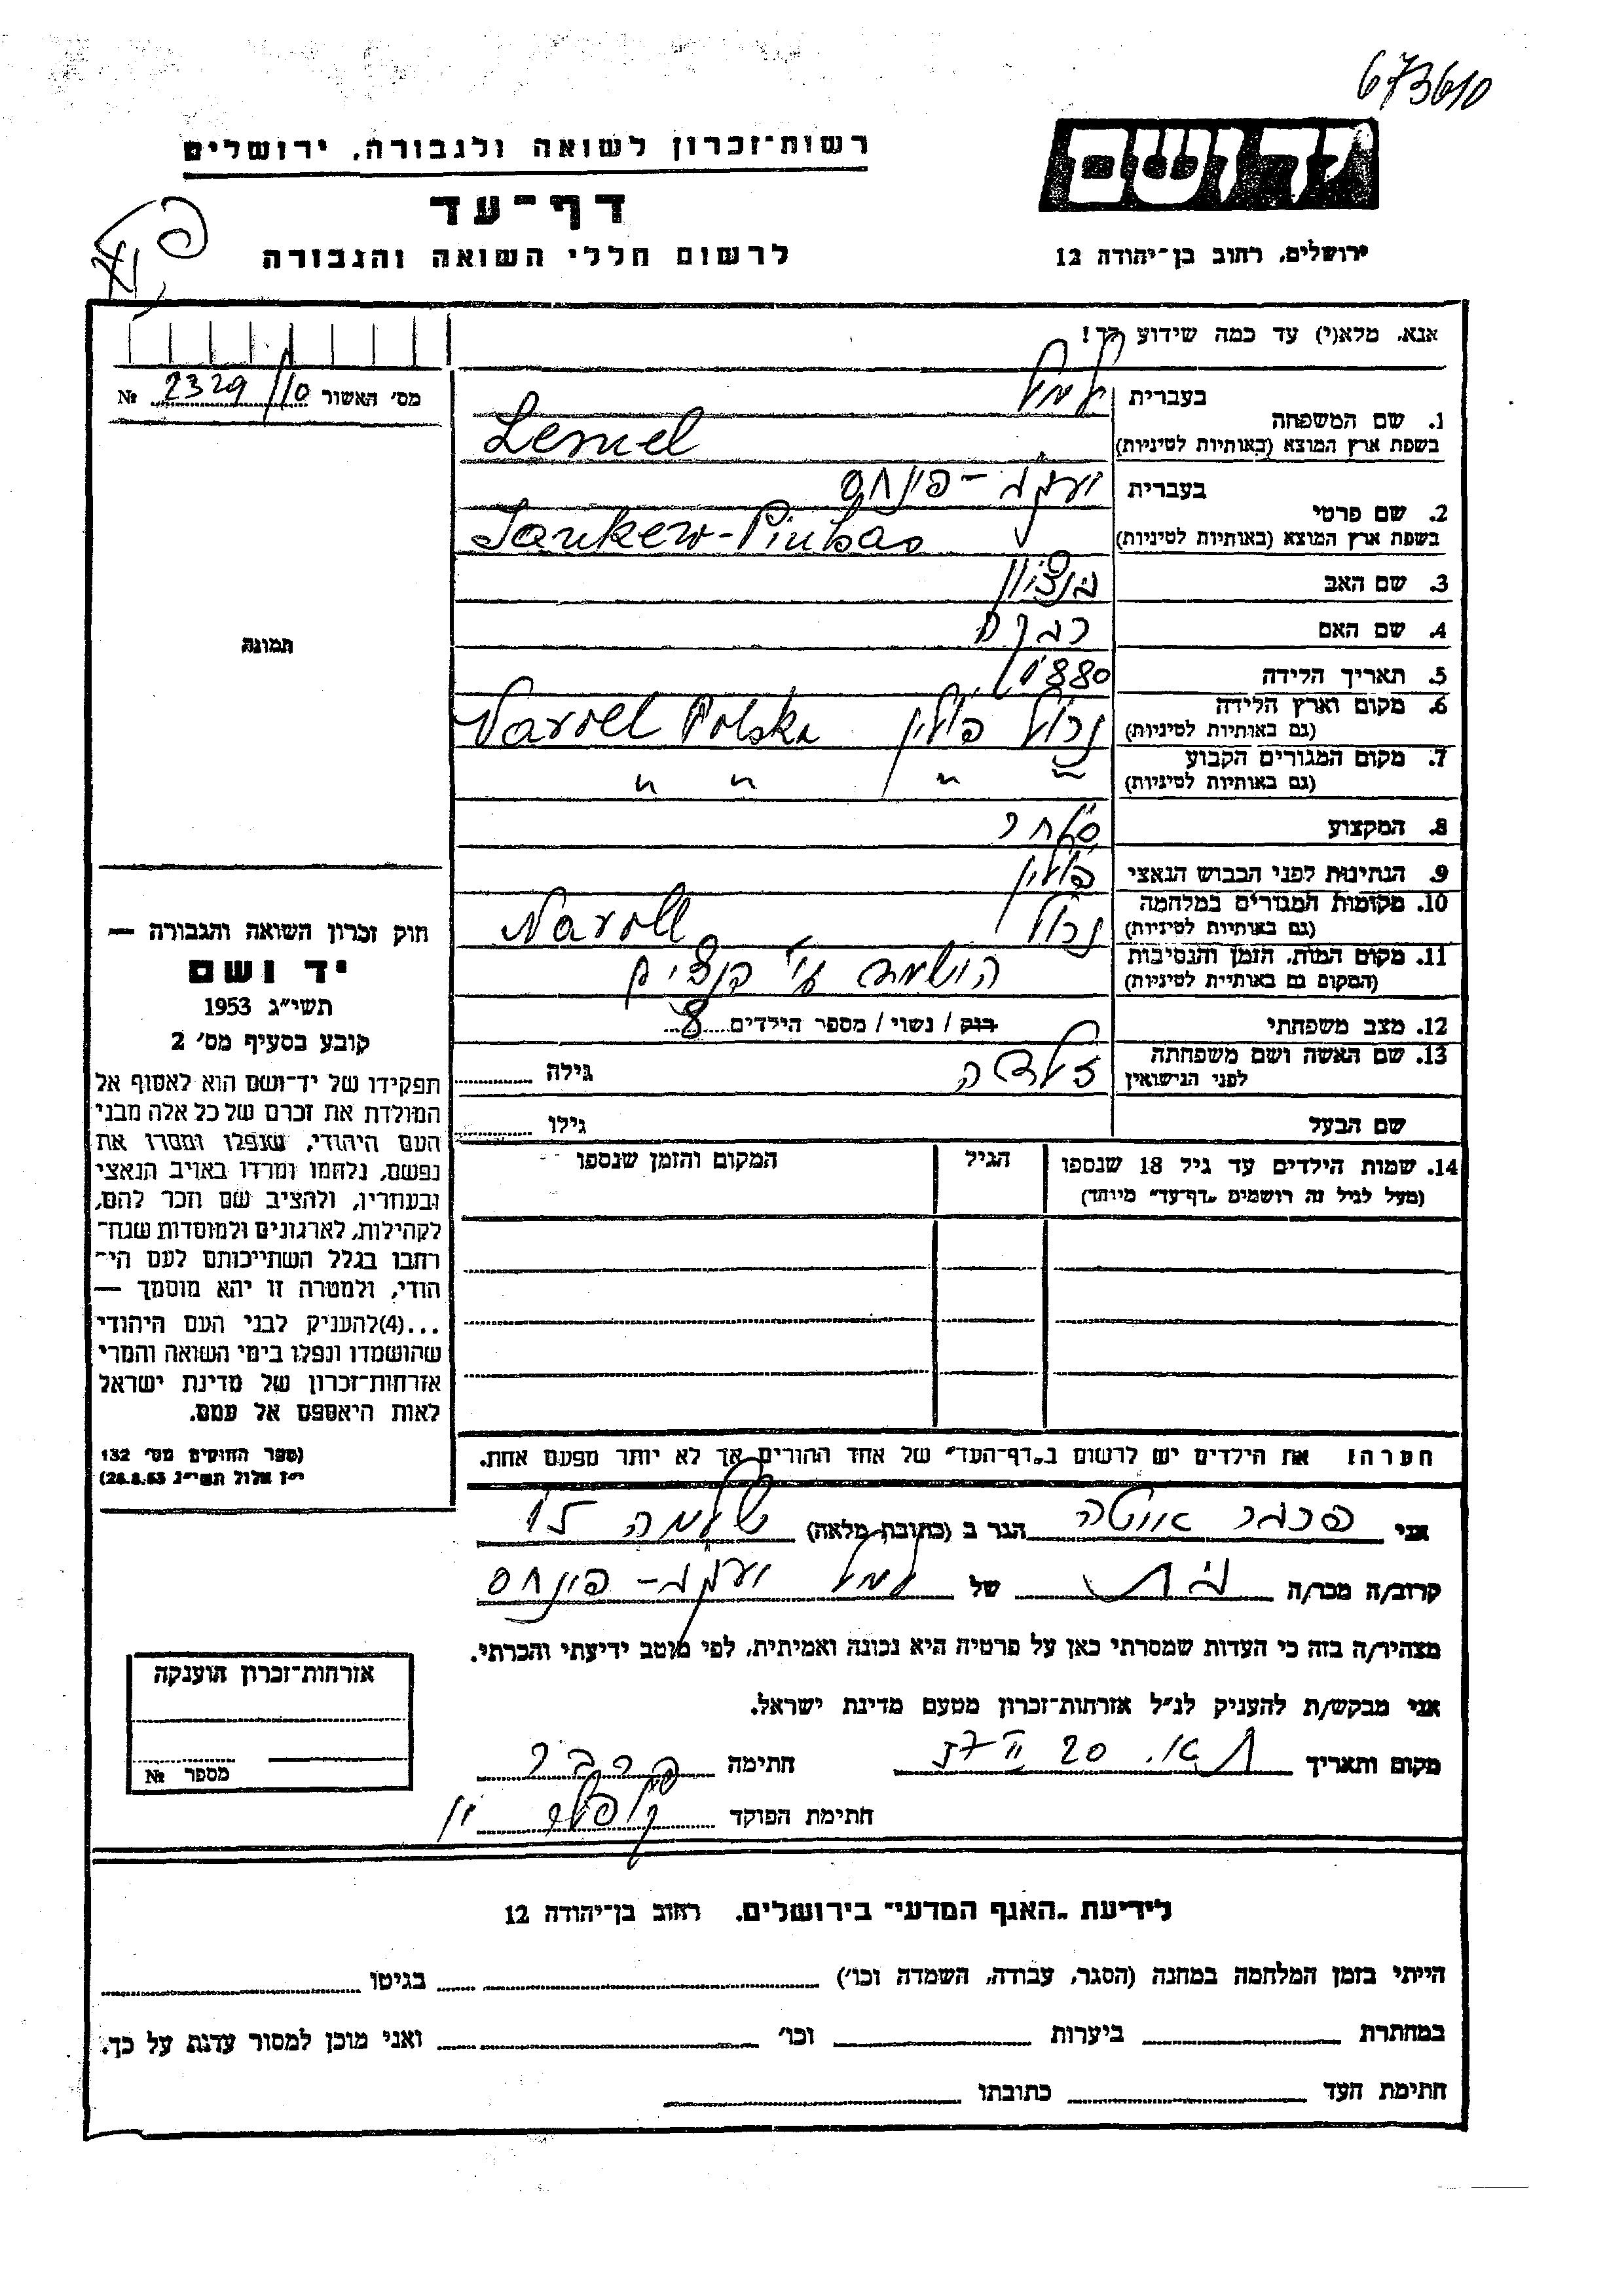 673610
יד ושם
רשות־זכרון לשואה ולגבורה, ירושלים
דף־עד
לרשום חללי השואה והגבורה
ירושלים, רחוב בן־יהודה 12
אנא, מלא(י) עד כמה שידוע לך!
מס' האשור 2329/10 №
1. שם המשפחה
בעברית למל
בשפת ארץ המוצא (באותיות לטיניות) Lemel
2. שם פרטי
בעברית יעקב - פינחס
בשפת ארץ המוצא (באותיות לטיניות) Jankew-Pinhas
3. שם האב בנציון
4. שם האם
5. תאריך הלידה 1880
6. מקום וארץ הלידה נרול פולין Narol Polska
(גם באותיות לטיניות)
7. מקום המגורים הקבוע " " " "
(גם באותיות לטיניות)
8. המקצוע סוחר
9. הנתינות לפני הכבוש הנאצי פולין
10. מקומות המגורים במלחמה נרול Naroll
(גם באותיות לטיניות)
11. מקום המות, הזמן והנסיבות הושמד ע"י הנצים
(המקום גם באותיית לטיניות)
12. מצב משפחתי רוק / נשוי / מספר הילדים 8
13. שם האשה ושם משפחתה זלדה גילה
לפני הנישואין
שם הבעל גילו
14. שמות הילדים עד גיל 18 שנספו הגיל המקום והזמן שנספו
(מעל לגיל זה רושמים "דף־עד" מיוחד)
תמונה
חוק זכרון השואה והגבורה —
יד ושם
תשי"ג 1953
קובע בסעיף מס' 2
תפקידו של יד־ושם הוא לאסוף אל
המולדת את זכרם של כל אלה מבני
העם היהודי, שנפלו ומסרו את
נפשם, נלחמו ומרדו באויב הנאצי
ובעוזריו, ולהציב שם וזכר להם,
לקהילות, לארגונים ולמוסדות שנח־
רחבו בגלל השתייכותם לעם הי־
הודי, ולמטרה זו יהא מוסמך —
...(4)להעניק לבני העם היהודי
שהושמדו ונפלו בימי השואה והמרי
אזרחות־זכרון של מדינת ישראל
לאות היאספם אל עמם.
(ספר החוקים מס' 132
י"ז אלול תשי"ג 28.8.53)
הערה: את הילדים יש לרשום ב"דף־העד" של אחד ההורים אך לא יותר מפעם אחת.
אני הגר ב (כתובת מלאה)
קרוב/ה מכר/ה בת של למל יעקב - פינחס
מצהיר/ה בזה כי העדות שמסרתי כאן על פרטיה היא נכונה ואמיתית, לפי מיטב ידיעתי והכרתי.
אני מבקש/ת להעניק לנ"ל אזרחות־זכרון מטעם מדינת ישראל.
מקום ותאריך ת"א. חתימה
חתימת הפוקד
אזרחות־זכרון הוענקה
מספר №
לידיעת "האגף המדעי" בירושלים, רחוב בן־יהודה 12
הייתי בזמן המלחמה במחנה (הסגר, עבודה, השמדה וכו') בגיטו
במחתרת ביערות וכו' ואני מוכן למסור עדות על כך.
חתימת העד כתובתו